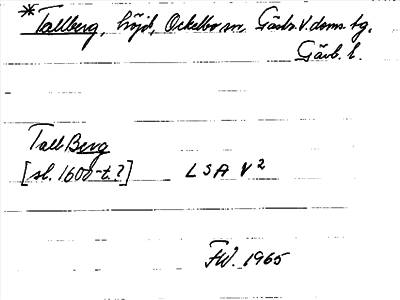 *Tallberg, höjd, Ockelbo sn, Gästr. V. doms. tg.
Gävl. l.
Tall Berg
[sl. 1600-t.?] LSA V2
FW. 1965